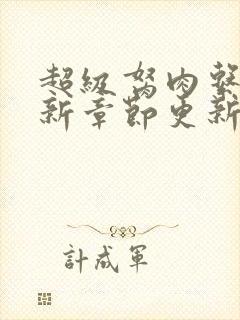 超級弩肉發
新章節更新
計成軍